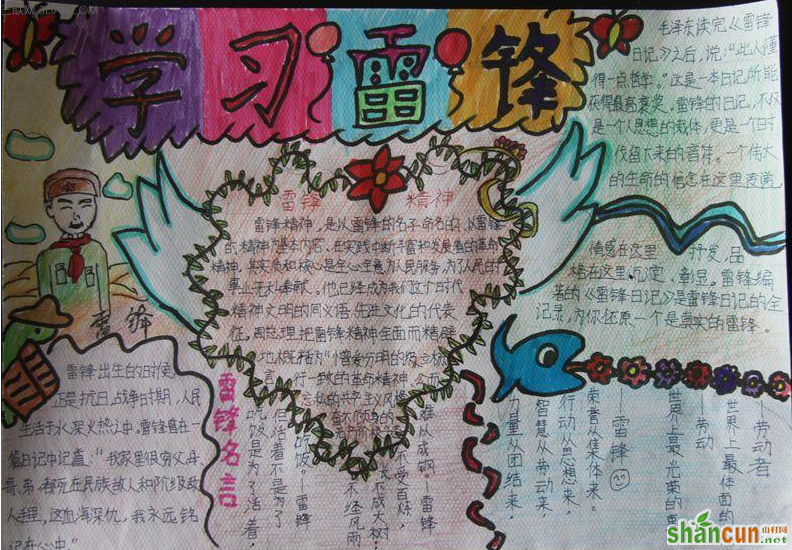 学习雷锋
毛泽东读完《雷锋
日记》之后,说:"此人懂
得一点哲学。"这是一本日记所能
获得最高褒奖。雷锋的日记,不仅
是一个人思想的载体,更是一个时
代留下来的音符。一个伟大
的生命的信念在这里表述,
情感在这里 抒发,品
格在这里沉淀,彰显。雷锋编
著的《雷锋日记》是雷锋日记的全
记录,为你还原一个最真实的雷锋。
雷锋 精神
雷锋精神,是从雷锋的名子命名的,以雷锋
的精神为基本内容,在实践中断丰富和发展着的革命
精神,其实质和核心是全心全意为人民服务,为了人民的
事业无私奉献。他已经成为我们这个时代
精神文明的同义语、先进文化的代表
征。周总理把雷锋精神全面而精辟
地概括为"憎爱分明的阶级立场、
言行一致的革命精神、公而
忘私的共产主义风格、
奋不顾身的
雷锋
雷锋出生的时候
正是抗日战争时期,人民
生活于水深火热之中。雷锋曾在一
篇日记中记着:"我家里很穷,父、母、
哥、弟,都死在民族敌人和阶级敌
人手里,这血海深仇,我永远铭
记在心中"
雷锋名言
吃饭是为了活着,
但活着不是为了
吃饭。 雷锋
不经风雨,
长不成大树;
不受百炼,
难以成钢。—雷锋
力量从团结来,
智慧从劳动来,
行动从思想来,
荣誉从集体来。
—雷锋
世界上最光荣的事
—劳动
世界上最体面的
—劳动者
shancun 山村网
.net